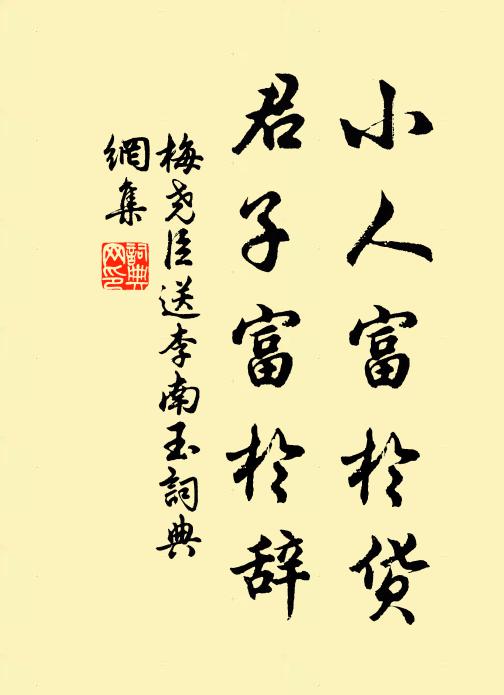 小人富於货
君子富於辞
梅尧臣送李南玉詞典
網集
詞典网印